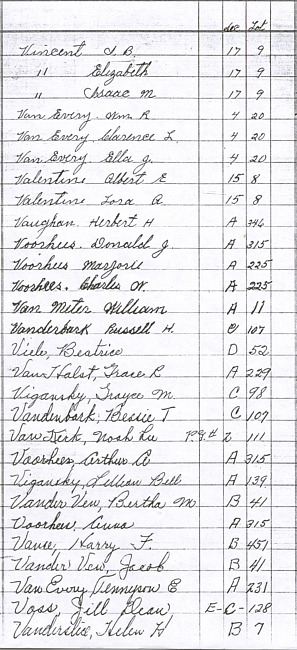 Sec Lot
Vincent J. B. 17 9
" Elizabeth 17 9
" Isaac M 17 9
Van Every Wm. R 4 20
Van Every Clarence L. 4 20
Van Every, Ella J. 4 20
Valentine Albert E 15 8
Valentine Lora A. 15 8
Vaughan. Herbert H A 346
Voorhees. Donald J. A 315
Voorhees Marjorie A 225
Voorhees. Charles W. A 225
Van Meter William A 11
Vanderbark Russell H. C 107
Viele, Beatrice D 52
Van Halst, Grace R A 229
Vigansky, Grayce M. C 98
Vandenbark, Bessie T C 107
Van Kirk, Noah Lee 111
Voorhees, Arthur A A 315
Vigansky, Lillian Bell A 139
Vander Ven, Bertha M B 41
Voorhees, Anna A 315
Vance, Harry F. B 451
Vander Ven, Jacob B 41
Van Every Tennyson E A 231
Voss, Jill Dean E-C- 128
Vanderslice, Helen H B 7